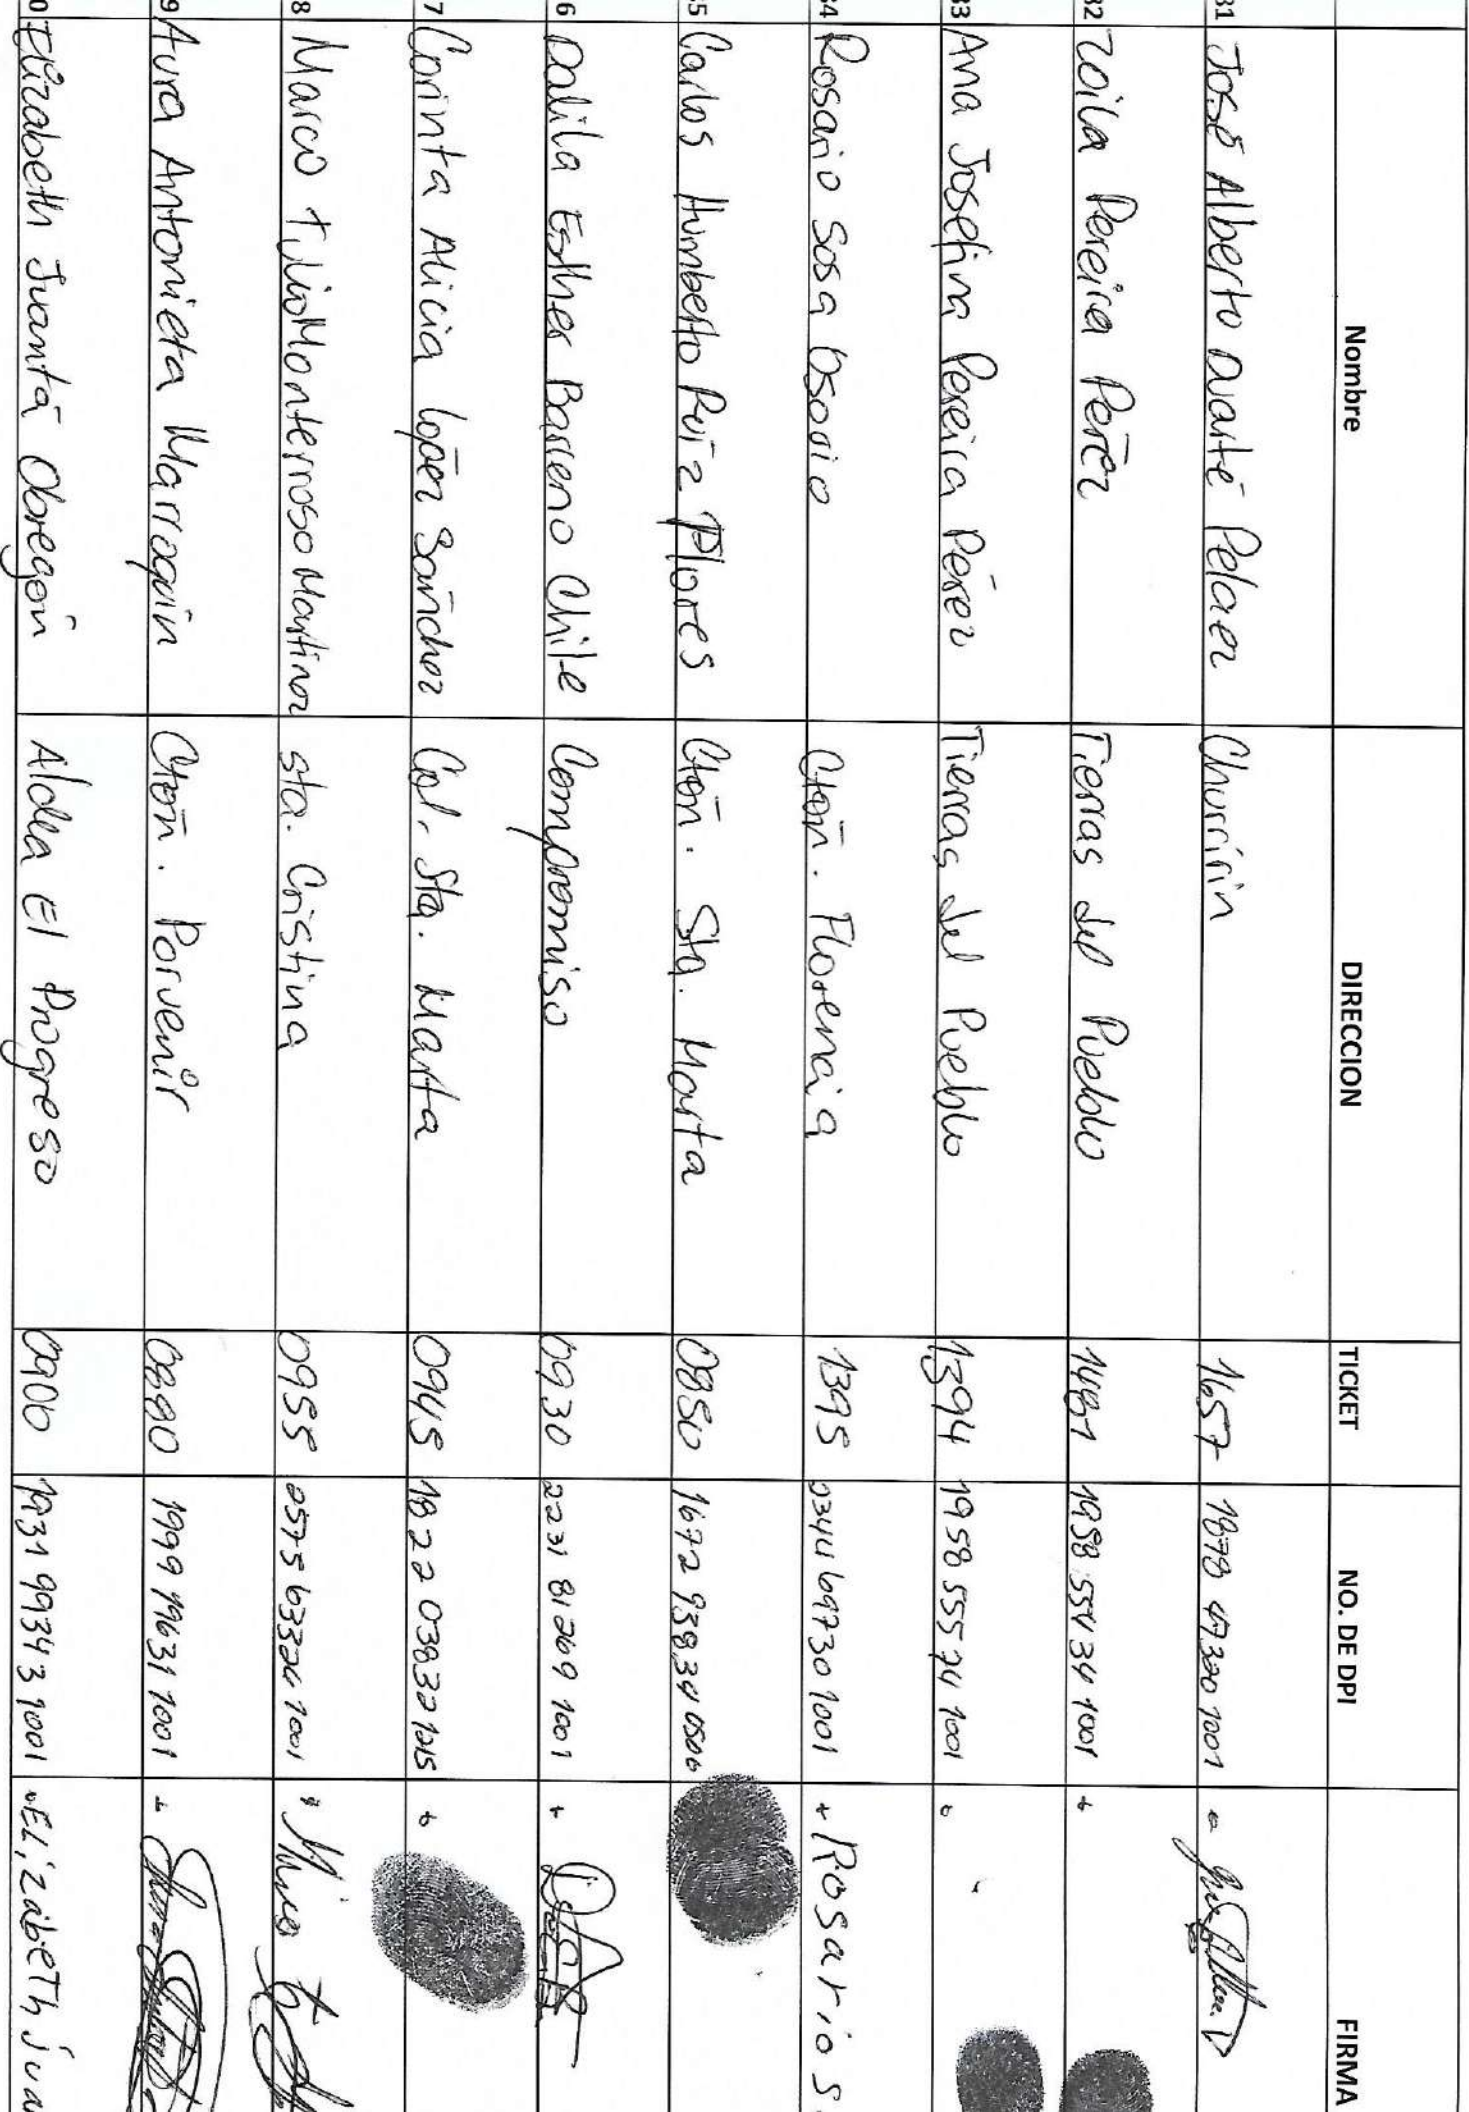 Nombre DIRECCION TICKET NO. DE DPI FIRMA
31 José Alberto Duarté Pelaez Churririn 1657 1878 47320 1001
32 Zoila Pereira Peréz Tierras del Pueblo 1481 1958 55434 1001
33 Ana Josefina Pereira Pérez Tierras del Pueblo 1394 1958 55574 1001
34 Rosario Sosa Osorio Ctón. Florencia 1395 0344 69730 1001 Rosario S.
35 Carlos Humberto Ruíz Flores Ctón. Sta. Marta 0850 1672 93834 0506
6 Dalila Esther Barreno Chile Compromiso 0930 2231 81269 1001
7 Corinta Alicia López Sánchez Col. Sta. Marta 0945 1822 03832 1215
8 Marco Tulio Monterroso Martinez sta. Cristina 0955 2575 63326 1001
9 Aura Antonieta Marroquín Ctón. Porvenir 0890 1999 19631 1001
0 Elizabeth Juanita Obregón Aldea El Progreso 0900 1931 99343 1001 Elizabeth Juan